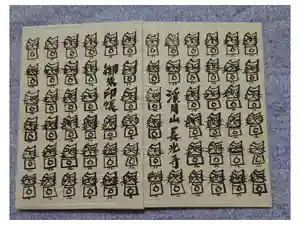 御集印帳
渓月山長光寺